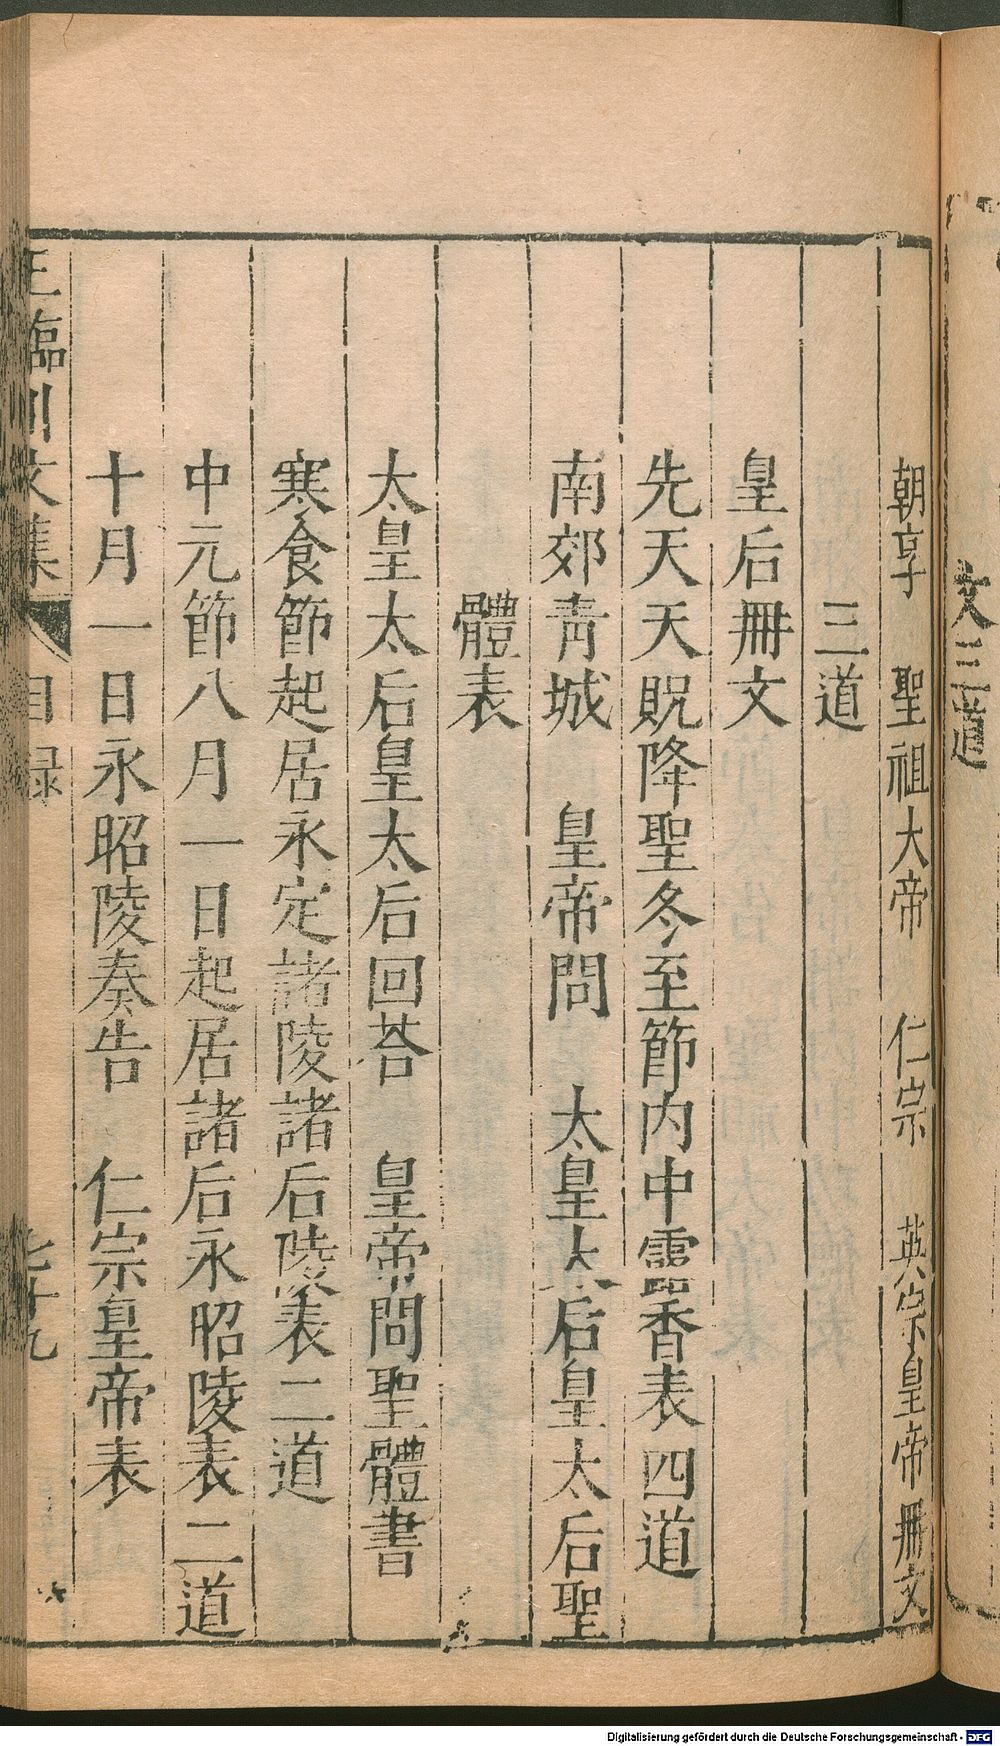 文三道
朝享　聖祖大帝　仁宗　英宗皇帝冊文
三道
皇后冊文
先天天貺降聖冬至節内中露香表四道
南郊青城　皇帝問　太皇太后皇太后聖
體表
太皇太后皇太后回荅　皇帝問聖體書
寒食節起居永定諸陵諸后陵表二道
中元節八月一日起居諸后永昭陵表二道
十月一日永昭陵奏告　仁宗皇帝表
王臨川文集　目録　七十九
Digitalisierung gefördert durch die Deutsche Forschungsgemeinschaft - DFG